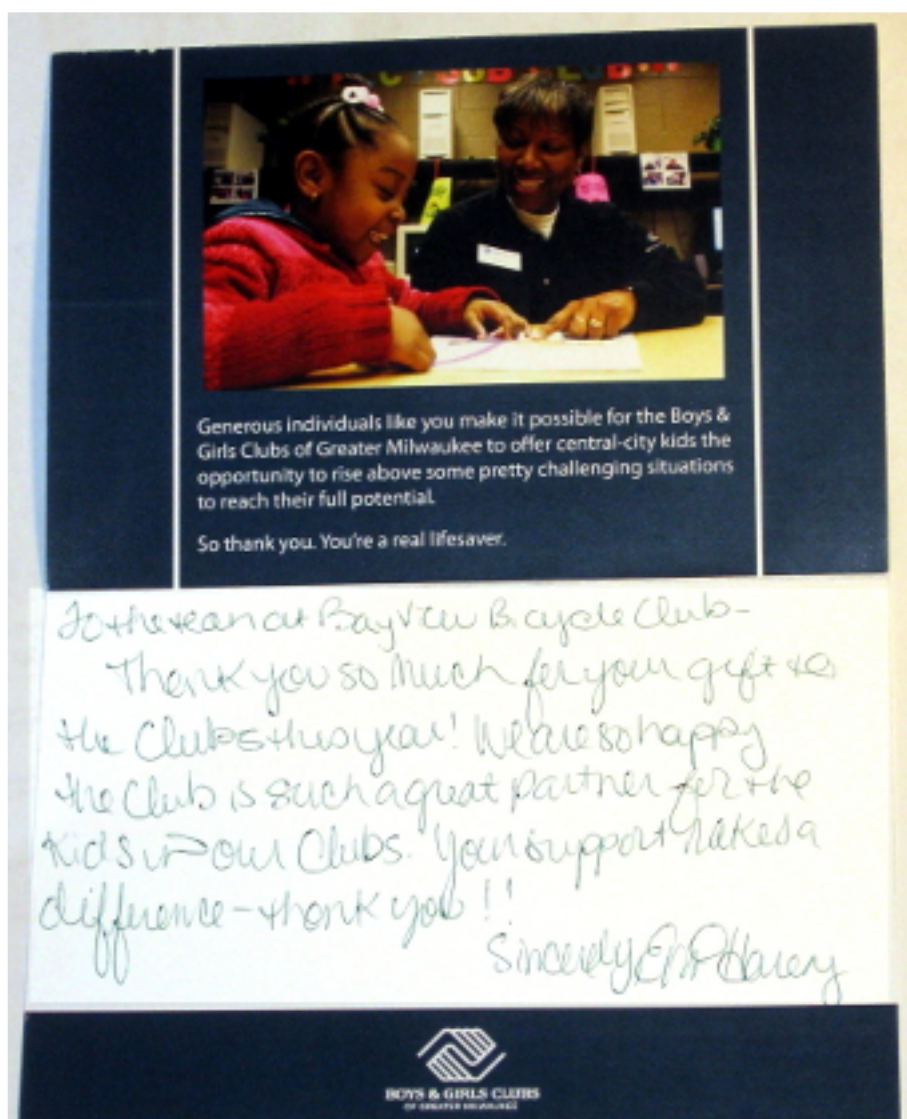 Generous individuals like you make it possible for the Boys &
Girls Clubs of Greater Milwaukee to offer central-city kids the
opportunity to rise above some pretty challenging situations
to reach their full potential.
So thank you. You're a real lifesaver.
To the team at Bay View Bicycle Club-
Thank you so much for your gift to
the Clubs this year! We are so happy
the Club is such a great partner for the
kids in our Clubs. Your support makes a
difference - thank you!!
Sincerely,
BOYS & GIRLS CLUBS
OF GREATER MILWAUKEE